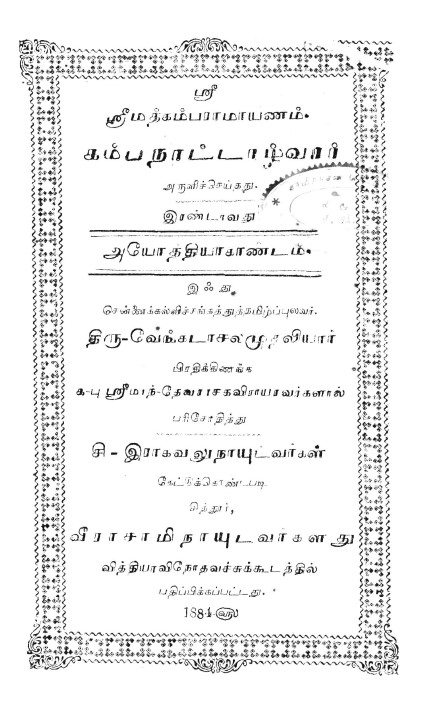 ஸ்ரீ
ஸ்ரீமத்கம்பராமாயணம்.
கம்பநாட்டாழ்வார்
அருளிச்செய்தது.
இரண்டாவது
அயோத்தியாகாண்டம்.
இஃது
சென்னைக்கல்விச்சங்கத்துத்தமிழ்ப்புலவர்.
திரு-வேங்கடாசலமுதலியார்
பிரதிக்கிணங்க
க-பு ஸ்ரீமாந்-தேவராசகவிராயரவர்களால்
பரிசோதித்து
சி - இராகவலுநாயுடவர்கள்
கேட்டுக்கொண்டபடி
சித்தூர்,
வீராசாமிநாயுடவர்களது
வித்தியாவிநோதவச்சுக்கூடத்தில்
பதிப்பிக்கப்பட்டது.
1884-௵